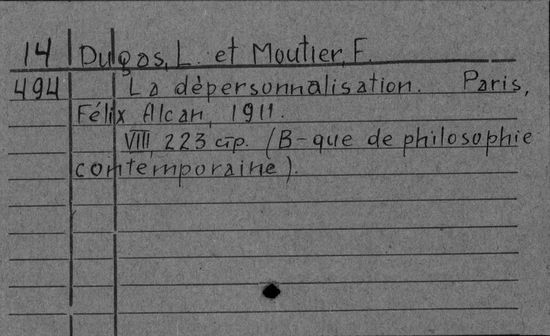 14 Dugas, L. et Moutier, F.
494 La dépersonnalisation. Paris,
Félix Alcan, 1911.
VIII, 223 стр. (B-que de philosophie
contemporaine).